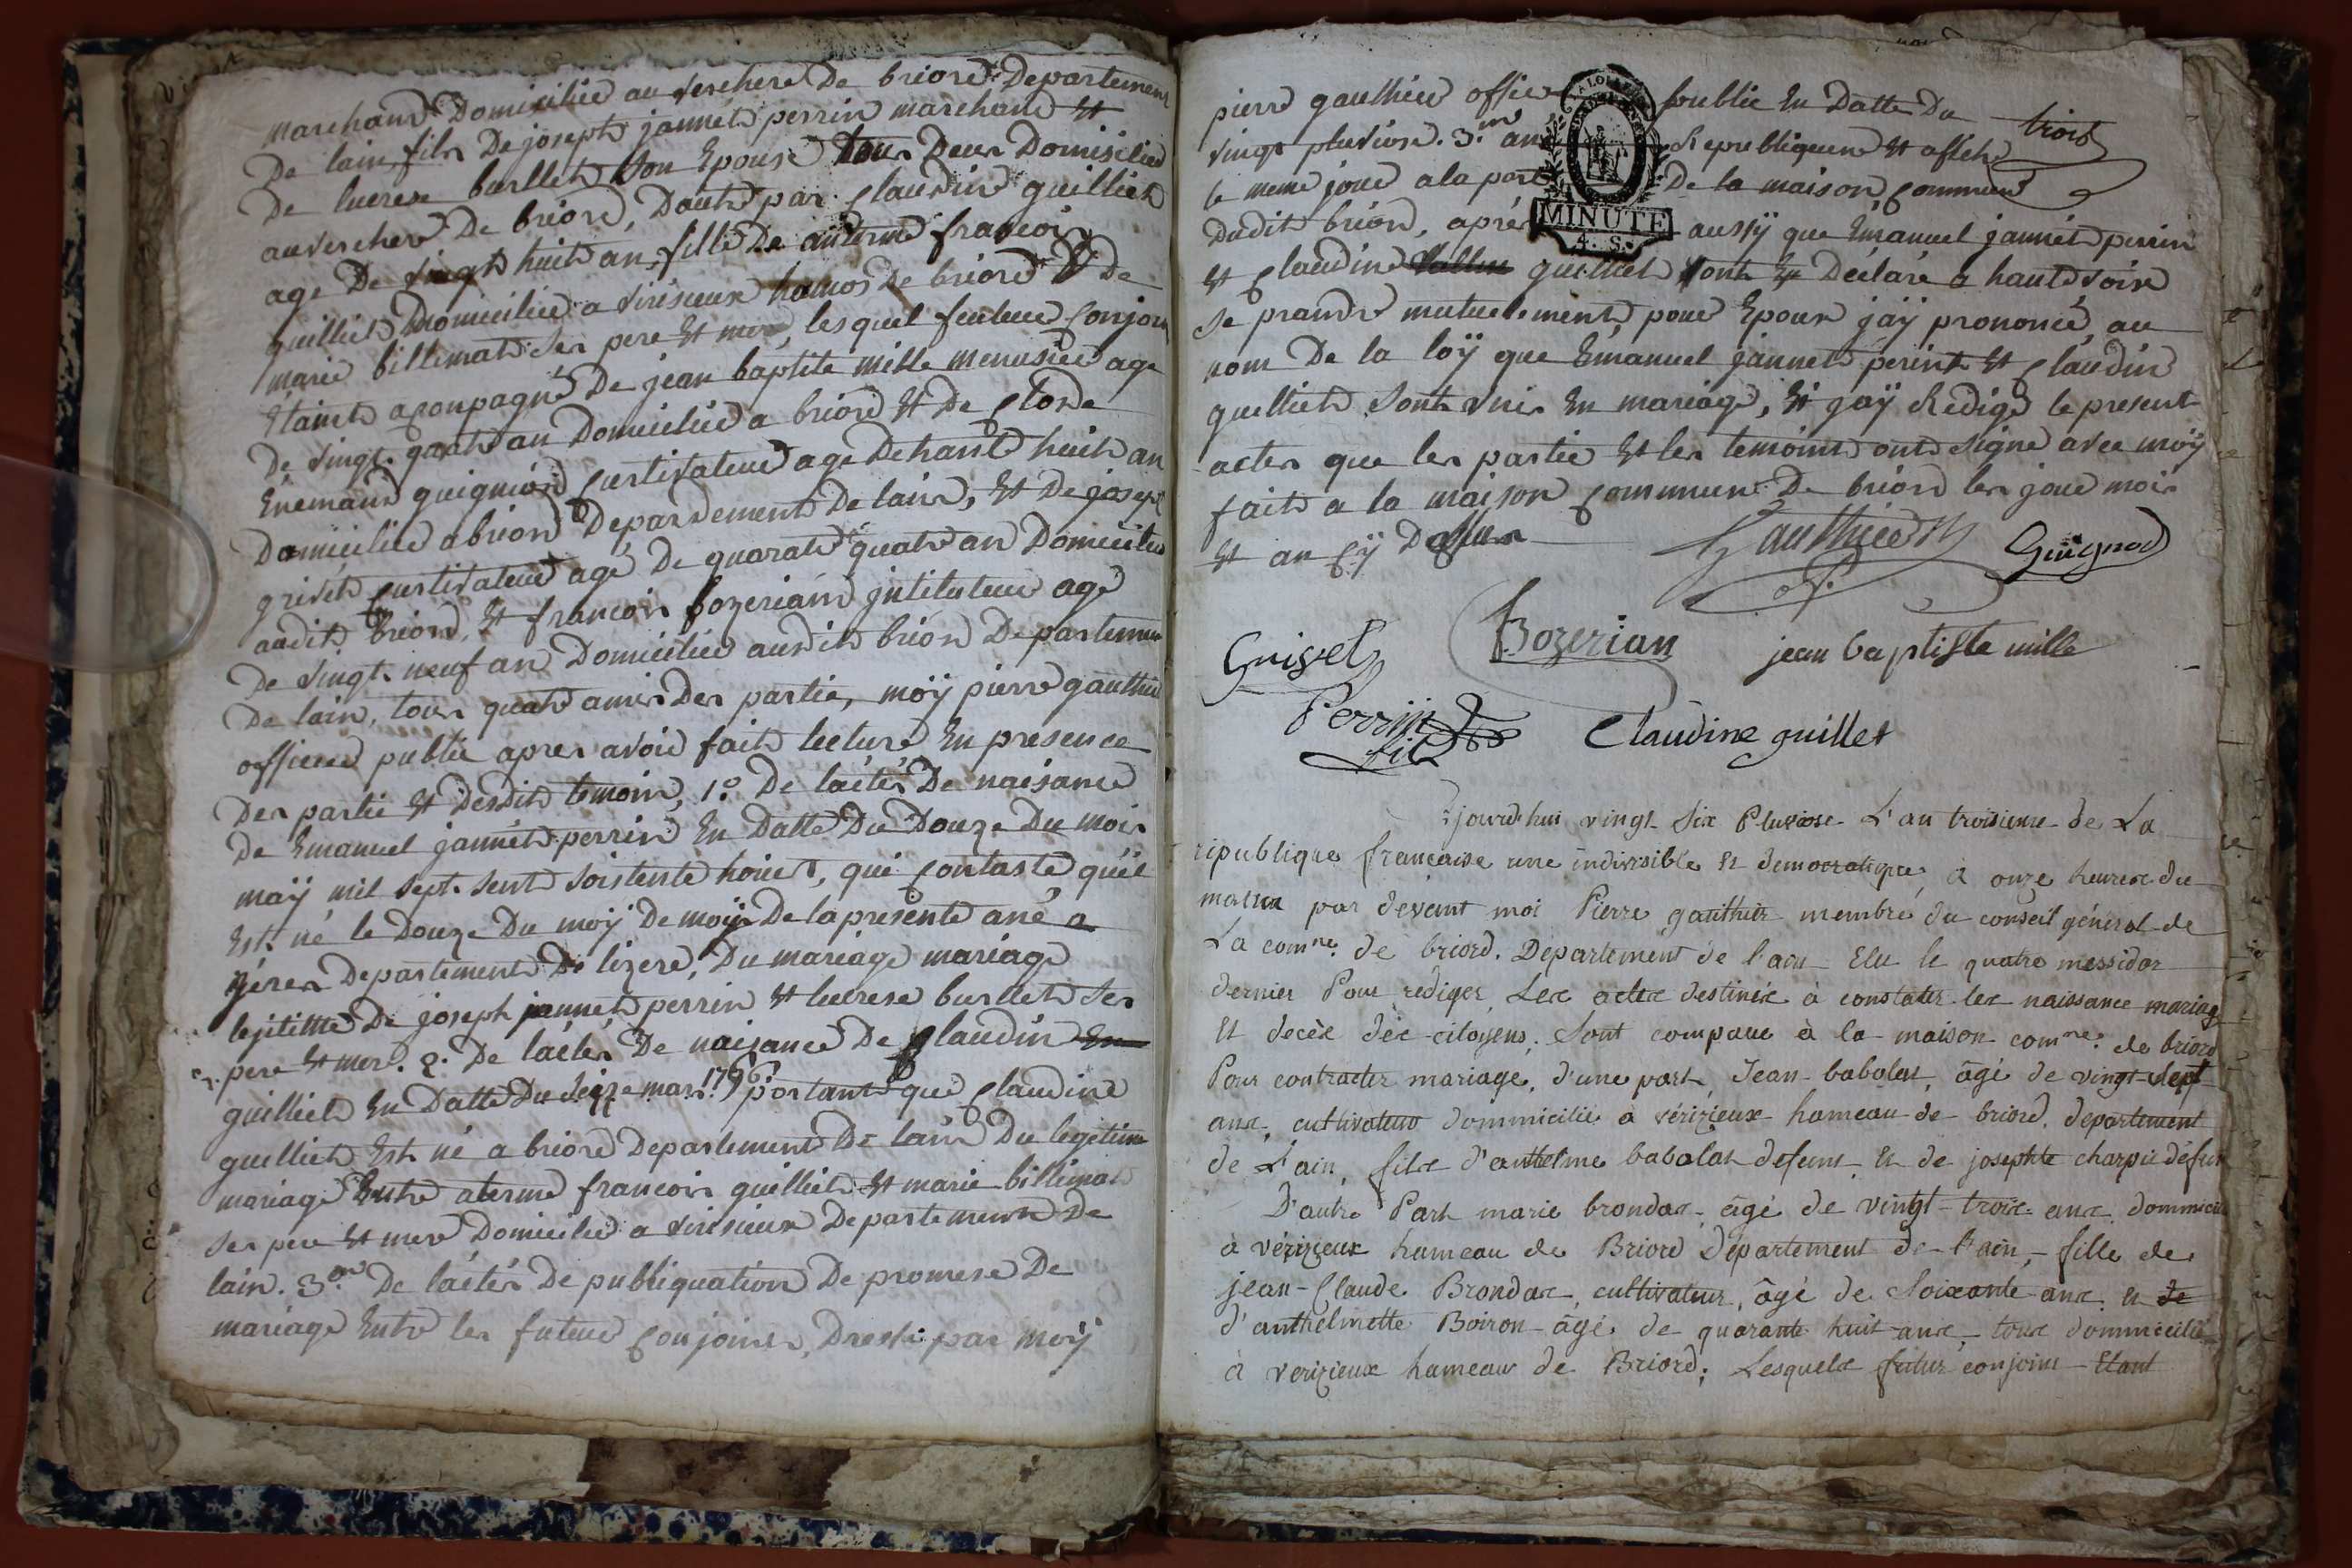 marchand Domicilié au verchere De briord Departement
De lain, fils De joseph jannet perrin marchand Et
De lucrese burllet Son Epouse tous Deux Domisilié
au verchere De briord, Dautre par Claudine guilliet
age De vingt huit an fille De anterme françois
guilliet Domicilié a virisieux hamos De briord Et De
marie billimat Ses pere Et mere, lesquel feuteur Conjoin
Etainet aconpagné De jean baptite mille menusier age
De vingt. quatre an Domicilié a briord Et De Clode
Enemand guigniord Cultivateur age De trante huit an
Domicilié a briord Departement De lain, Et De joseph
grivet Cultivateur agé De quarate quatre an Domicilié
audit briord, Et francois bozerian jntituteur agé
De vingt. neuf an Domicilié audit briord Departemen
De lain, tous quatre amis Des partie, moÿ pierre gauthie
officier publie apres avoir fait lecture En presence
Des partie Et Desdit temoin, 1.° De lactes De naisance
De Emanuel jannet perrin En Datte Du Douze Du mois
maÿ mil sept. sent soistente houit, qui Contaste quil
Est né le Douze Du moÿ De moÿ De la presente ané a
Departement De lizere, Du mariage mariage
lejitime De joseph jannet perrin Et lucrese burllet Ses
pere Et mere. 2. De lactes De naisance De Claudin En
guilliet En Datte Du seize mars 1766. portant que Claudine
guilliet Est né a briord Departement De lain Du legetime
mariage Entre aterme francois guilliet Et marie billimat
Ses pere Et mere Domicilié a virisieux Departement De
lain. 3.me De lactes De publiquation De promese De
mariage Entre les futeur Conjoines, Dresse par moÿ
pierre gauthier officier publie En Datte Du
vingt pluviose. 3.me an Republiquene Et afiche
le meme jour a la porte De la maison Commune
Dudit briord, aprés aussÿ que Emanuel jannet perrin
Et Claudine guilliet sont Eu Déclaré a haute voix
Se prandre mutuelement, pour Epoux jaÿ prononcé, au
nom De la loÿ que Emanuel jannet perint Et Claudin
guilliet Sont unis En mariage, Et jaÿ Redige le present
actes que les partie Et les temoint ont Signe avec moÿ
fait a la maison Commune De briord les jour mois
Et an Cÿ Dessus
trois
A LOI
MINUTE
4. S.
Gauthier
Guignod
Grivet
Bozerian
jean baptiste mille
Perrin
fils
Claudine guillet
jourd'hui vingt Six Pluviose L'an troisieme de La
republique française une indivisible et democratique, à onze heures du
matin par devant moi Pierre gauthier membre du conseil général de
La com.ne de briord. Departement de l'ain Elu le quatre messidor
dernier Pour rediger Les actes destinés à constater les naissance mariag
Et decès des citoyens, Sont comparu à la maison com.ne de briord
Pour contracter mariage, d'une part Jean babolat, âgé de vingt-Sept
ans, cultivateur dommicilié à vérizieux hameau de briord. departement
de L'ain, fils d'anthelme babolat defunt Et de josephte charpie défun
D'autre Part marie brondax, âgé de vingt-trois ans, dommicili
à vérizieux hameau de Briord département de l'ain, fille de
jean-Claude Brondax, cultivateur, âgé de Soixante ans, Et de
d'anthelmette Boiron âgé de quarante huit ans, tous dommicilié
à verizieux hameau de Briord; Lesquels futur conjoins Etant